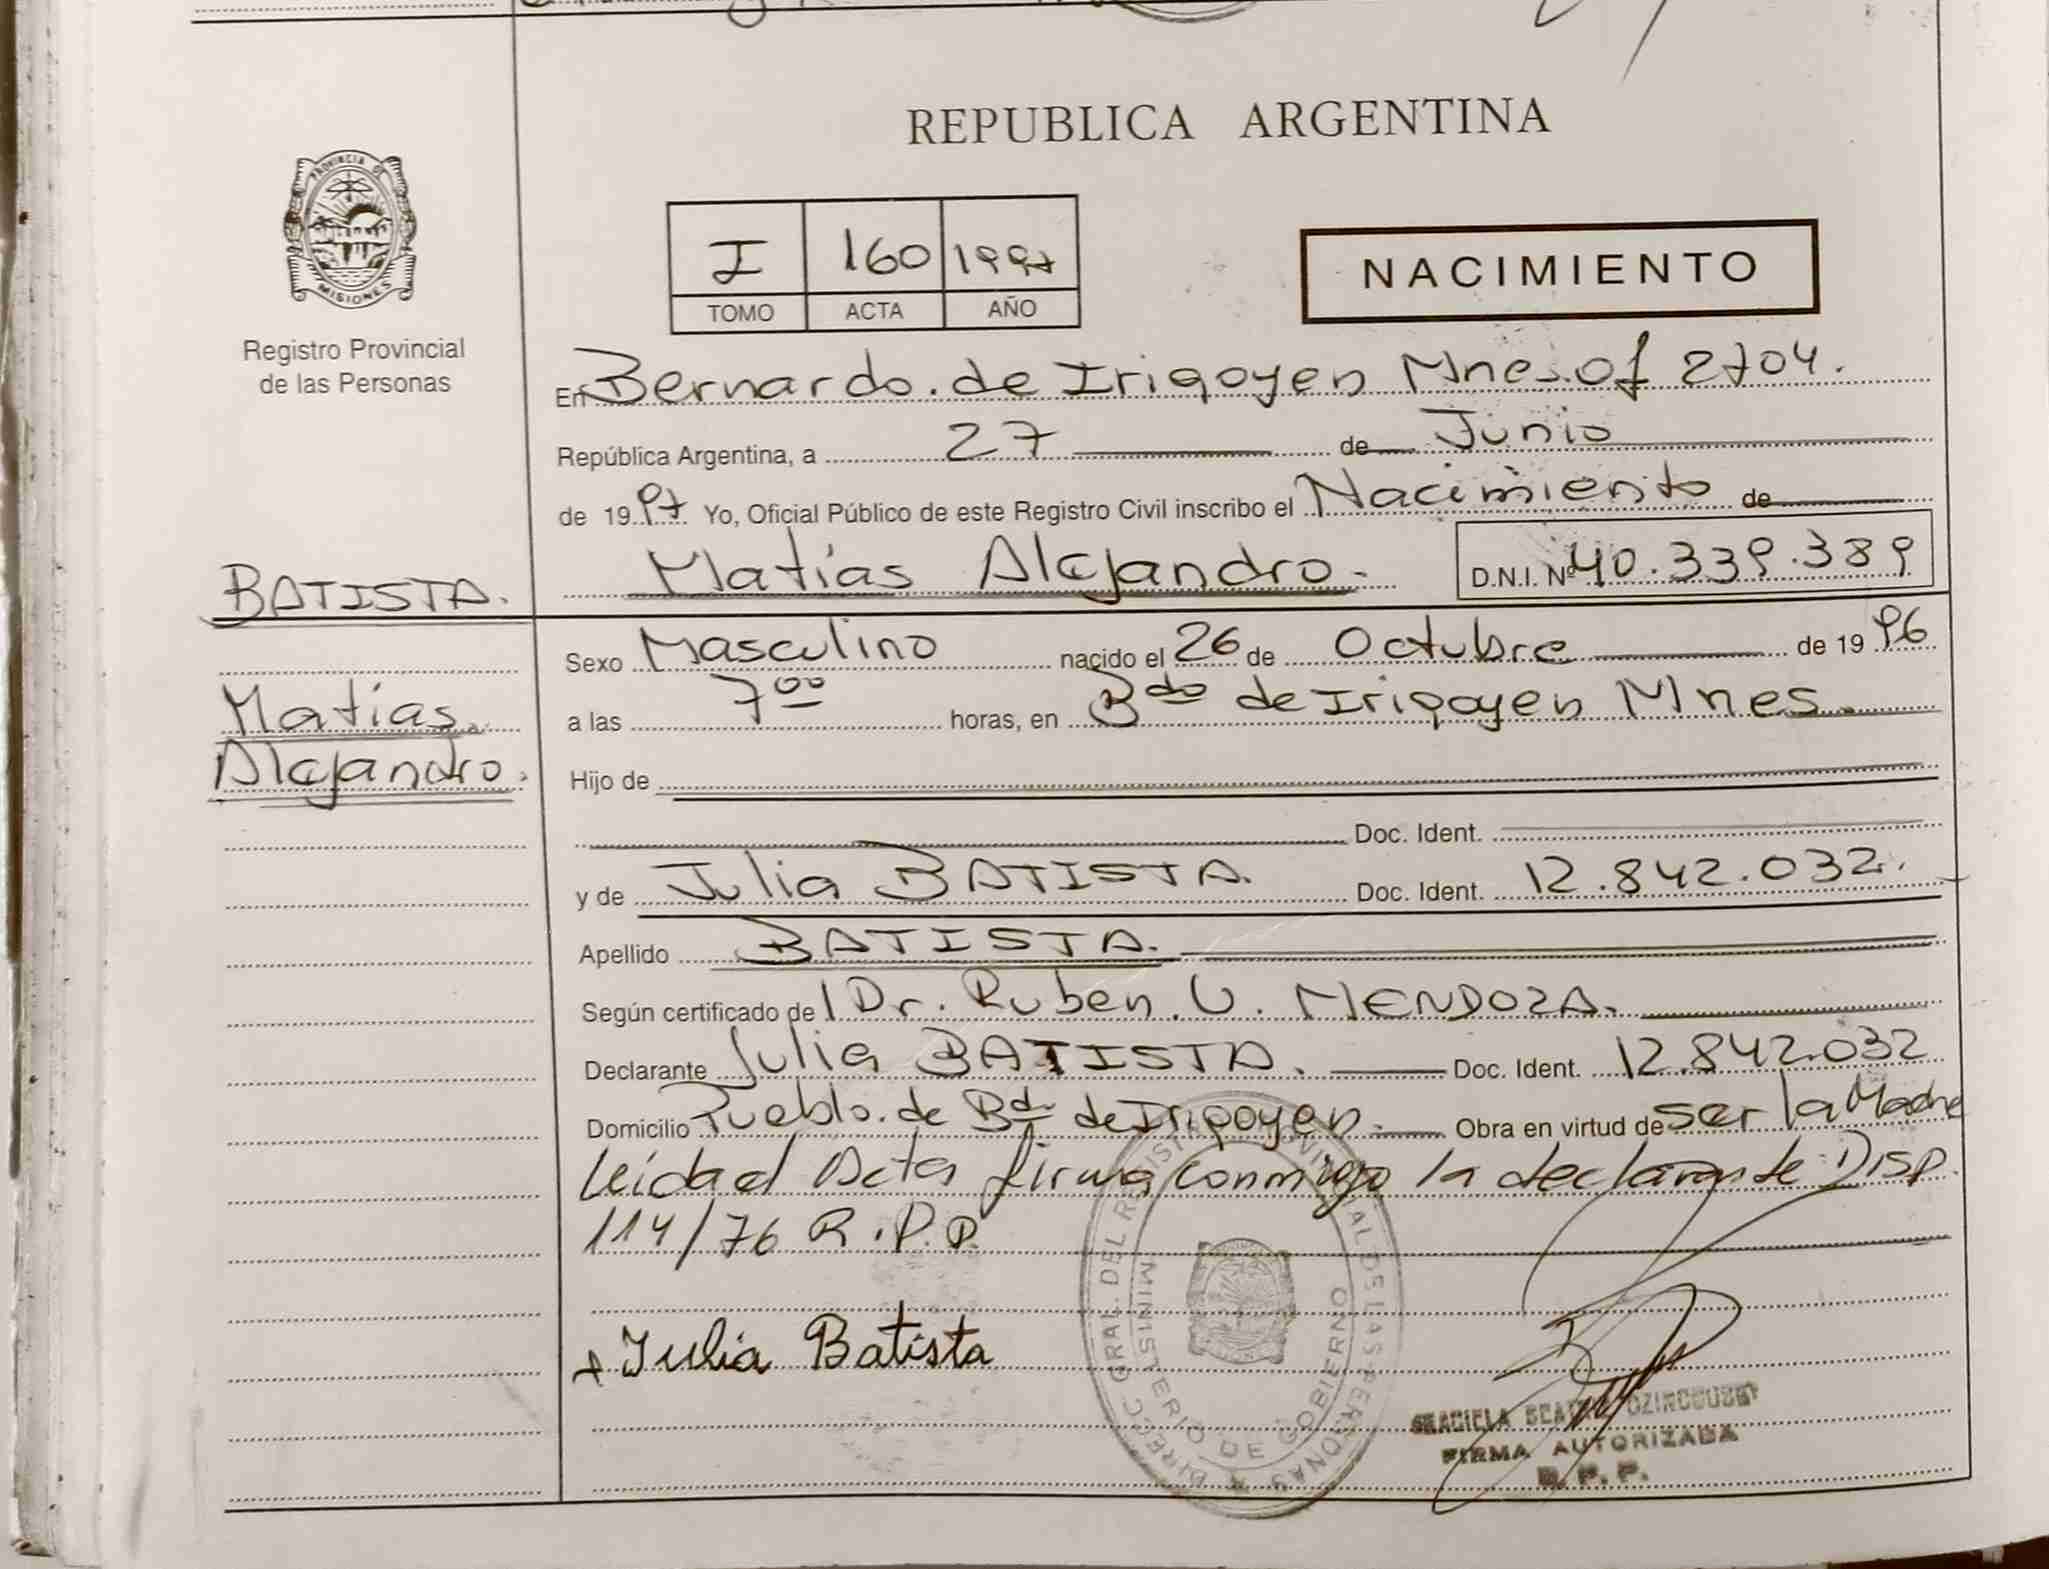 REPUBLICA ARGENTINA
PROVINCIA DE
MISIONES
Registro Provincial
de las Personas
I 160 1997
TOMO ACTA AÑO
NACIMIENTO
En Bernardo. de Irigoyen Mnes. Of 2704.
República Argentina, a 27 de Junio
de 1997 Yo, Oficial Público de este Registro Civil inscribo el Nacimiento de
Matías Alejandro. D.N.I. Nº 40.339.389
BATISTA.
Matías
Alejandro.
Sexo Masculino nacido el 26 de Octubre de 1996
a las 7 00 horas, en Bdo de Irigoyen Mnes.
Hijo de
Doc. Ident.
y de Julia BATISTA. Doc. Ident. 12.842.032.
Apellido BATISTA.
Según certificado del Dr. Ruben. U. MENDOZA.
Declarante Julia BATISTA. Doc. Ident. 12.842.032
Domicilio Pueblo. de Bdo de Irigoyen. Obra en virtud de ser la Madre
Leida el Acta firma conmigo la declarante Disp.
114/76 R.P.P.
Julia Batista
DIRECC. GRAL. DEL REGISTRO PROVINCIAL DE LAS PERSONAS
MINISTERIO DE GOBIERNO
GRACIELA BEATRIZ
FIRMA AUTORIZADA
R. P. P.